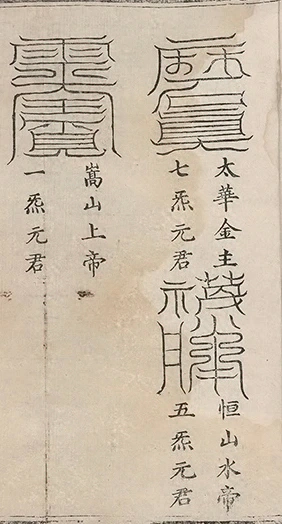 太華金主
七炁元君
恒山水帝
五炁元君
嵩山上帝
一炁元君